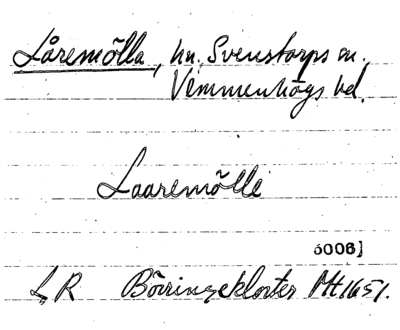 Låremölla, hn. Svenstorps sn.
Vemmenhögs hd.
Laaremölle
6006]
LR Börringekloster Mt 1651.